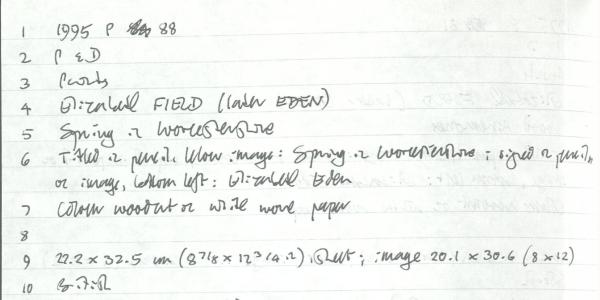 1 1995 P 88
2 P & D
3 Prints
4 Elizabeth FIELD (later EDEN)
5 Spring in Worcestershire
6 Titled in pencil, below image: Spring in Worcestershire; signed in pencil,
on image, bottom left: Elizabeth Eden
7 Colour woodcut on white wove paper
8
9 22.2 x 32.5 cm (8 7/8 x 12 3/4 in.) sheet; image 20.1 x 30.6 (8 x 12)
10